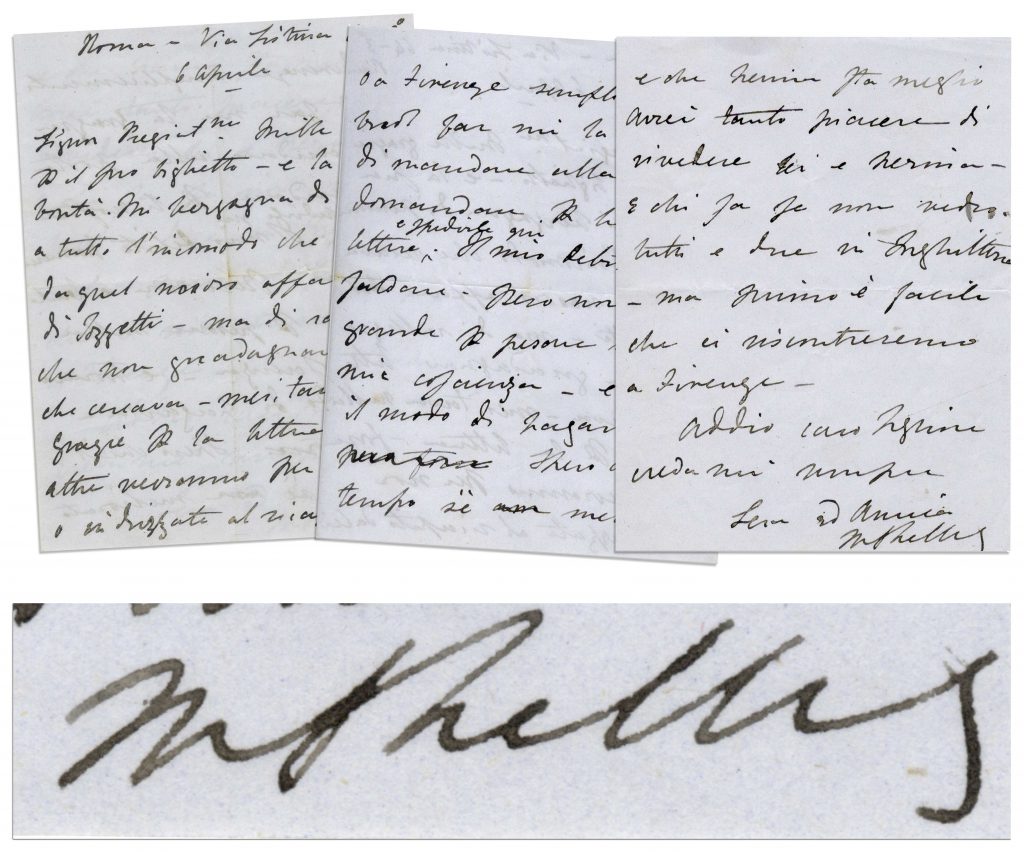 Roma - Via Sistina
6 Aprile
Signor Pregiatmo Mille
il suo biglietto - e la
bontà. Mi vergogna di
a tutto l'incomodo che
da quel noioso affa
di Pozzetti - ma di
che non guadagnar
che cercava - meritar
grazie la lettera
altre verranno per
o indrizzate al
a Firenze sempl
far mi la
di mandare alla
domandare le
lettere, e spedirle qui. Il mio debi
saldare. Pero non
grande pesare
mia coscienza - e
il modo di pagar
Spero
tempo me
e che Hernia sta meglio
avrei tanto piacere di
rivedere lei e Hernia -
E chi sa se non vedro
tutti e due in Inghilterra
- ma primo è facile
che ci riscontreremo
a Firenze -
Addio caro Signore
creda mi sempre
Sera ed Amica
MShelley
MShelley